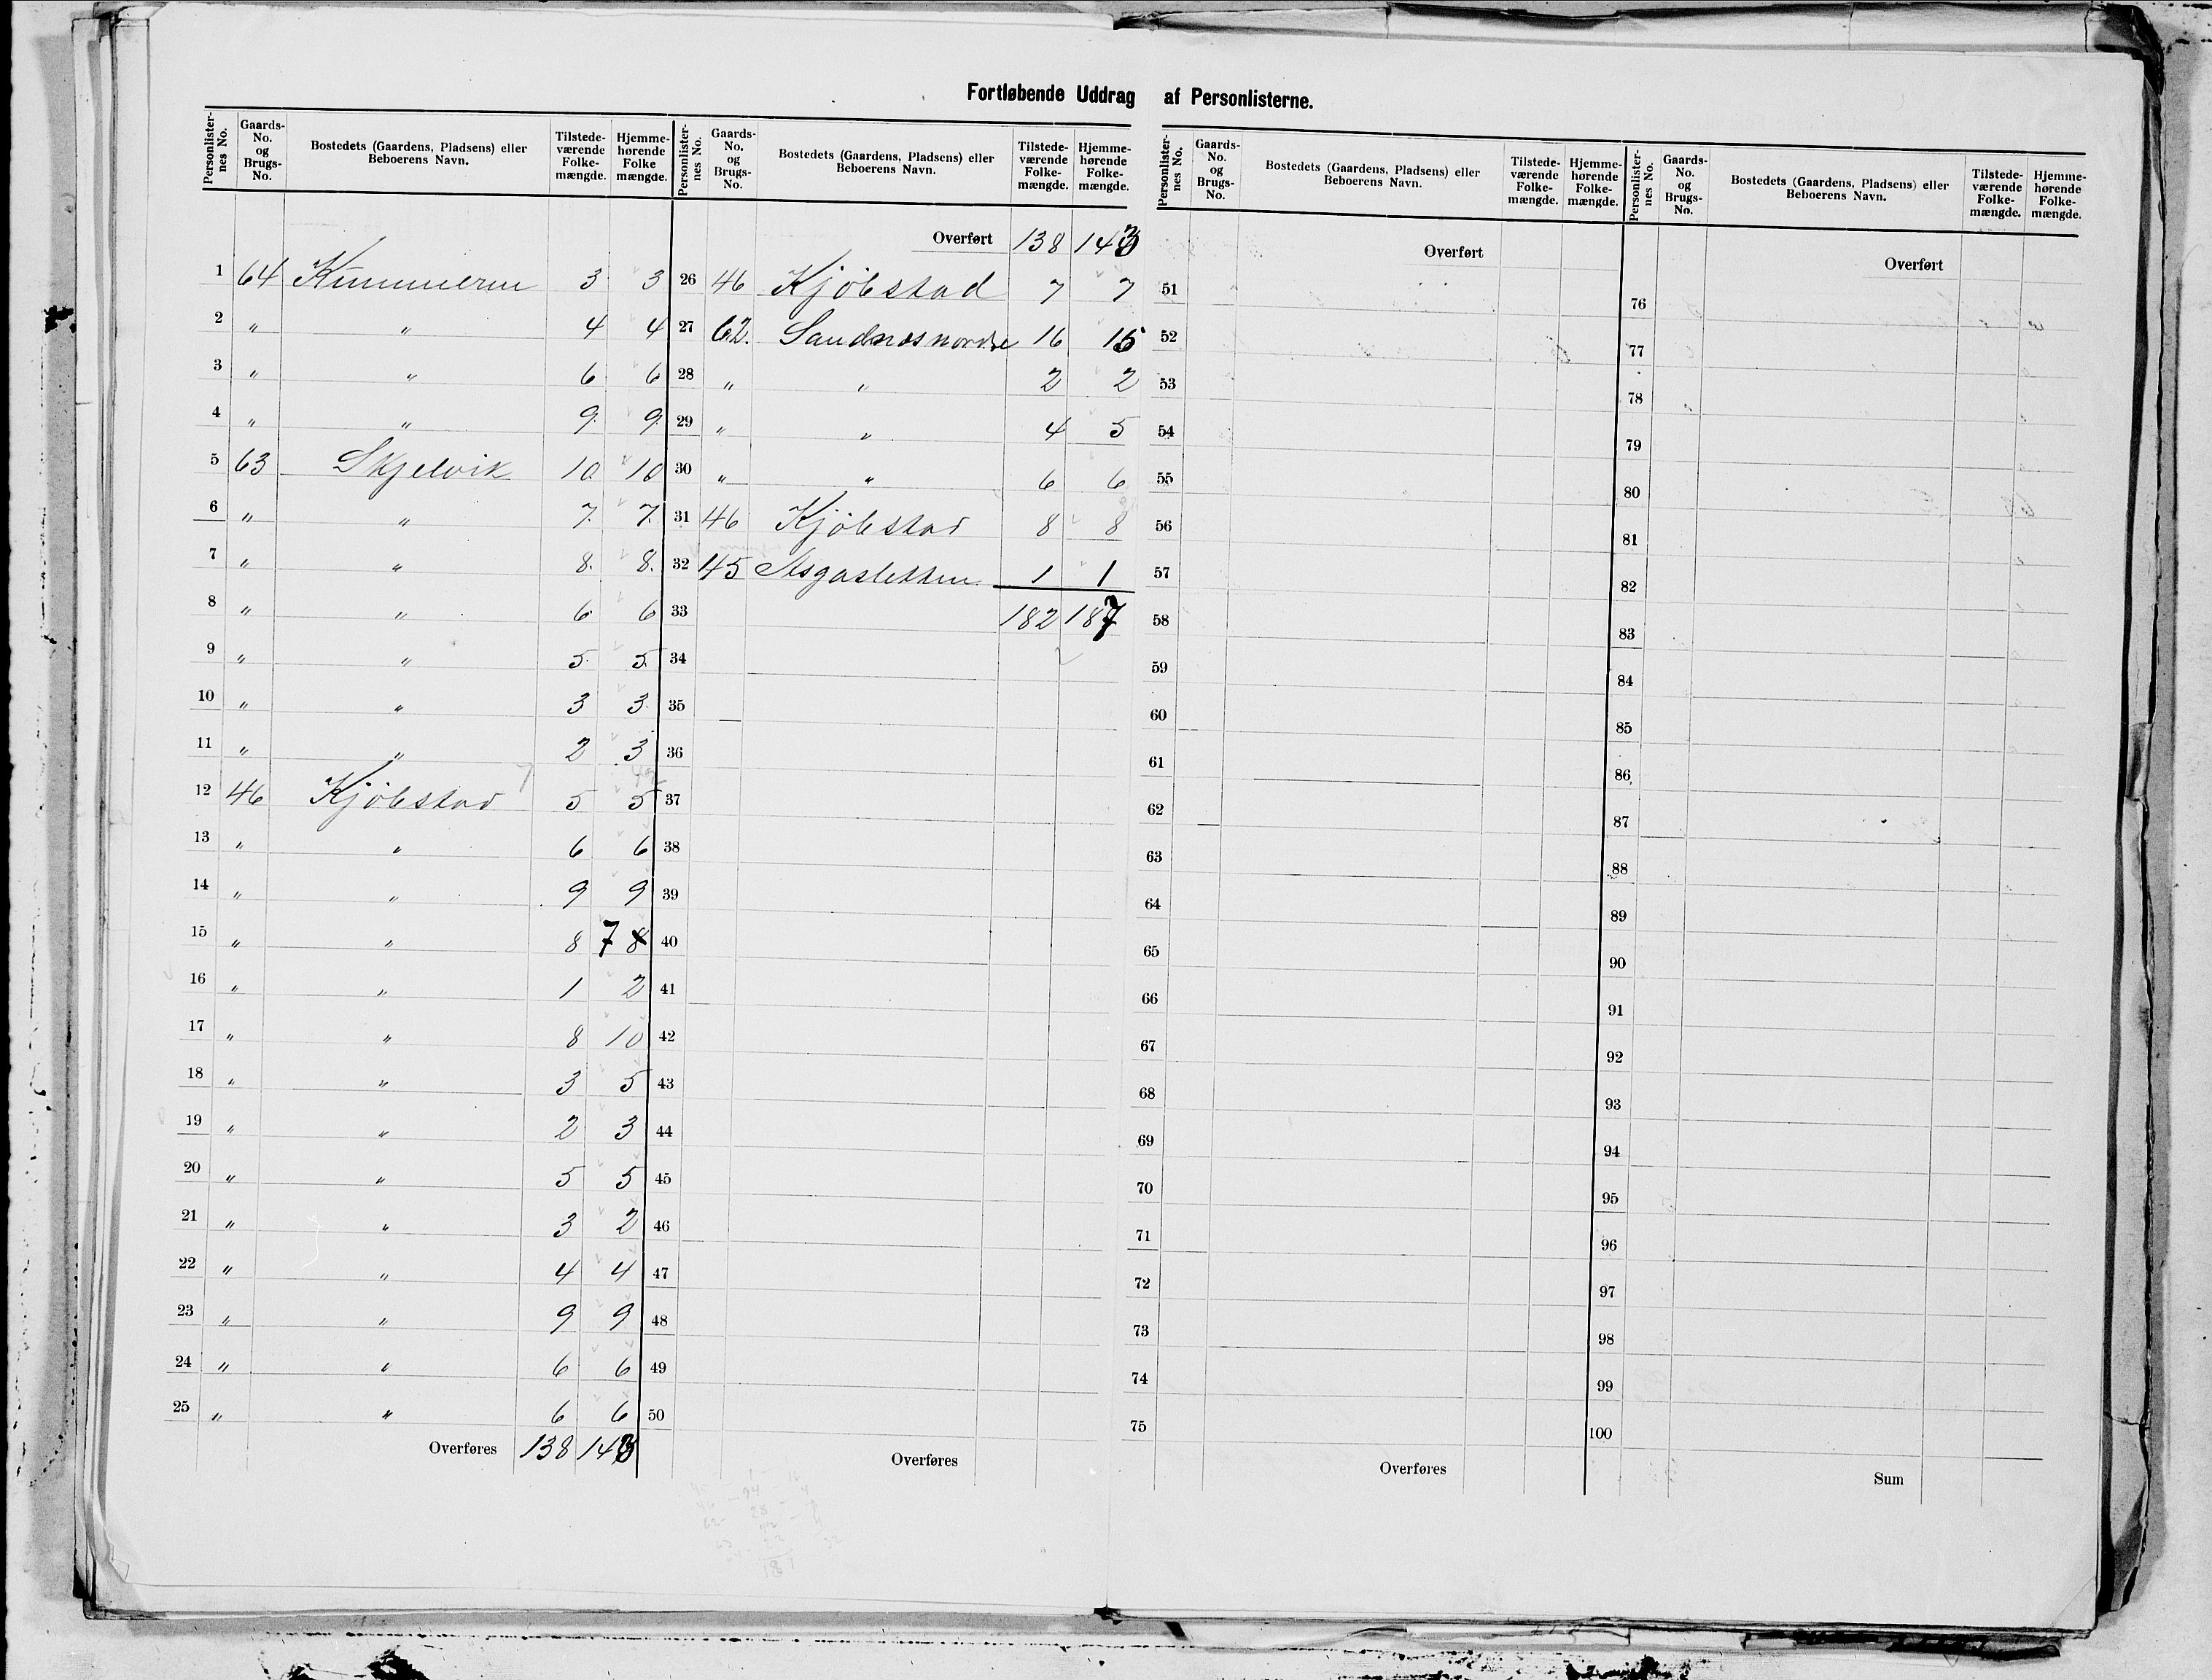 Fortløbende Uddrag af Personlisterne.
Personlisternes No. Gaards-No. og Brugs-No. Bostedets (Gaardens, Pladsens) eller Beboerens Navn. Tilstedeværende Folkemængde. Hjemmehørende Folkemængde.
1 64 Kummeren 3 3
2 " " 4 4
3 " " 6 6
4 " " 9. 9.
5 63 Skjelvik 10 10
6 " " 7. 7.
7 " " 8. 8.
8 " " 6 6
9 " " 5. 5.
10 " " 3 3.
11 " " 2 3
12 46 Kjøbstad 5 5
13 " " 6 6
14 " " 9 9
15 " " 8 7 8
16 " " 1 2
17 " " 8 10
18 " " 3 5
19 " " 2 3
20 " " 5 5
21 " " 3 2
22 " " 4 4
23 " " 9 9
24 " " 6 6
25 " " 6 6
Overføres 138 143
Personlisternes No. Gaards-No. og Brugs-No. Bostedets (Gaardens, Pladsens) eller Beboerens Navn. Tilstedeværende Folkemængde. Hjemmehørende Folkemængde.
Overført 138 143
26 46 Kjöbstad 7 7
27 62. Sandnesnordre 16 15
28 " " 2 2
29 " " 4 5
30 " " 6 6
31 46 Kjöbstad 8 8
32 45 1 1
33 182 187
34
35
36
37
38
39
40
41
42
43
44
45
46
47
48
49
50
Overføres
Personlisternes No. Gaards-No. og Brugs-No. Bostedets (Gaardens, Pladsens) eller Beboerens Navn. Tilstedeværende Folkemængde. Hjemmehørende Folkemængde.
Overført
51
52
53
54
55
56
57
58
59
60
61
62
63
64
65
66
67
68
69
70
71
72
73
74
75
Overføres
Personlisternes No. Gaards-No. og Brugs-No. Bostedets (Gaardens, Pladsens) eller Beboerens Navn. Tilstedeværende Folkemængde. Hjemmehørende Folkemængde.
Overført
76
77
78
79
80
81
82
83
84
85
86
87
88
89
90
91
92
93
94
95
96
97
98
99
100
Sum